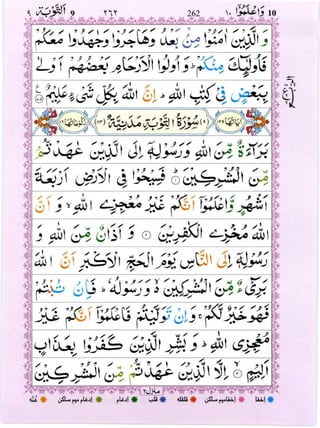 اَلتَّوْبَة ٩ 9 ٢٦٢ 262 وَاعْلَمُوْٓا ١٠ 10
وَالَّذِيْنَ اٰمَنُوْا مِنْۢ بَعْدُ وَهَاجَرُوْا وَجٰهَدُوْا مَعَكُمْ
فَاُولٰٓئِكَ مِنْكُمْ ؕ وَاُولُوا الْاَرْحَامِ بَعْضُهُمْ اَوْلٰى
بِبَعْضٍ فِيْ كِتٰبِ اللّٰهِ ؕ اِنَّ اللّٰهَ بِكُلِّ شَيْءٍ عَلِيْمٌ ۝
سُوْرَةُ التَّوْبَةِ مَدَنِيَّةٌ
بَرَآءَةٌ مِّنَ اللّٰهِ وَرَسُوْلِهٖٓ اِلَى الَّذِيْنَ عٰهَدْتُّمْ
مِّنَ الْمُشْرِكِيْنَ ؕ فَسِيْحُوْا فِي الْاَرْضِ اَرْبَعَةَ
اَشْهُرٍ وَّاعْلَمُوْٓا اَنَّكُمْ غَيْرُ مُعْجِزِي اللّٰهِ ۙ وَ اَنَّ
اللّٰهَ مُخْزِي الْكٰفِرِيْنَ ۝ وَ اَذَانٌ مِّنَ اللّٰهِ وَ
رَسُوْلِهٖٓ اِلَى النَّاسِ يَوْمَ الْحَجِّ الْاَكْبَرِ اَنَّ اللّٰهَ
بَرِيْٓءٌ مِّنَ الْمُشْرِكِيْنَ ۙ وَ رَسُوْلُهٗ ؕ فَاِنْ تُبْتُمْ
فَهُوَ خَيْرٌ لَّكُمْ ۚ وَاِنْ تَوَلَّيْتُمْ فَاعْلَمُوْٓا اَنَّكُمْ غَيْرُ
مُعْجِزِي اللّٰهِ ؕ وَ بَشِّرِ الَّذِيْنَ كَفَرُوْا بِعَذَابٍ
اَلِيْمٍ ۝ اِلَّا الَّذِيْنَ عٰهَدْتُّمْ مِّنَ الْمُشْرِكِيْنَ
منزل ٢
اخفا اخفامیم ساکن قلقله قلب ادغام ادغام میم ساکن غنّه